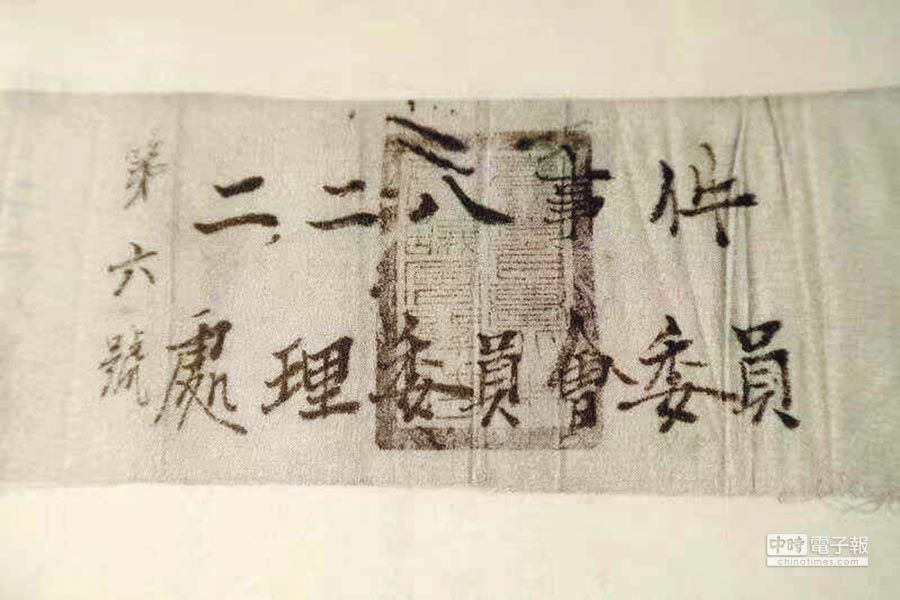 二二八事件
處理委員會委員
第六號
中時電子報
chinatimes.com